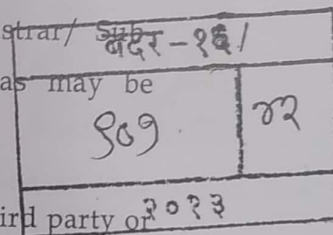 strar/ Sub
बदर - १६/
as may be
९०७ ४२
ird party or २०२३